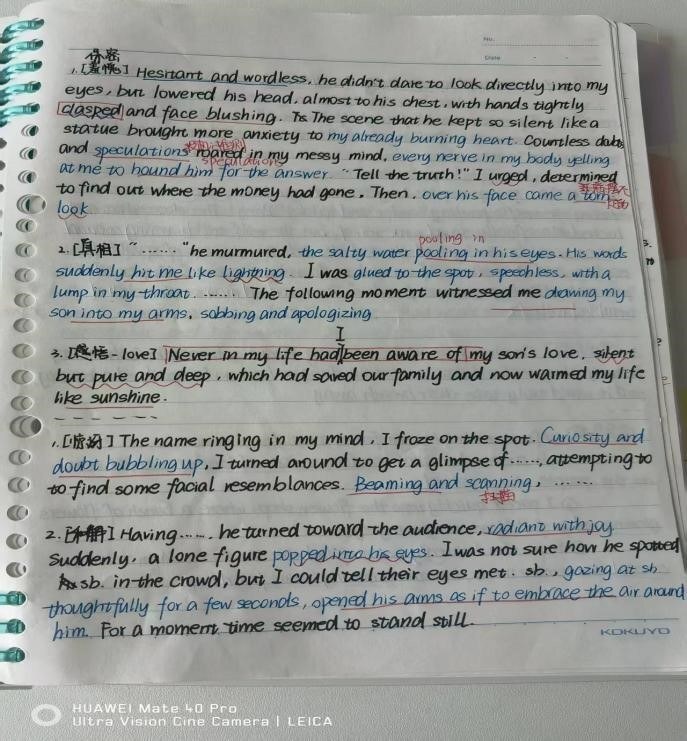 No.
Date
1. [羞愧] Hesitant and wordless, he didn't dare to look directly into my
eyes, but lowered his head, almost to his chest, with hands tightly
clasped and face blushing. The scene that he kept so silent like a
statue brought more anxiety to my already burning heart. Countless
and speculations roared in my messy mind, every nerve in my body yelling
speculations
at me to hound him for the answer. "Tell the truth!" I urged, determined
to find out where the money had gone. Then, over his face came a torn
look
pooling in
2. [真相] "......" he murmured, the salty water pooling in his eyes. His words
suddenly hit me like lightning. I was glued to the spot, speechless, with a
lump in my throat. ...... The following moment witnessed me drawing my
son into my arms, sobbing and apologizing
3. [感悟-love] Never in my life had been aware of my son's love, silent
I
but pure and deep, which had saved our family and now warmed my life
like sunshine.
1. [惊讶] The name ringing in my mind, I froze on the spot. Curiosity and
doubt bubbling up, I turned around to get a glimpse of ......, attempting to
to find some facial resemblances. Beaming and scanning, ......
扫描
2. [和静] Having ......, he turned toward the audience, radiant with joy
Suddenly, a lone figure popped into his eyes. I was not sure how he spotted
sb. in the crowd, but I could tell their eyes met. sb., gazing at sb
thoughtfully for a few seconds, opened his arms as if to embrace the air around
him. For a moment time seemed to stand still.
KOKUYO
HUAWEI Mate 40 Pro
Ultra Vision Cine Camera | LEICA